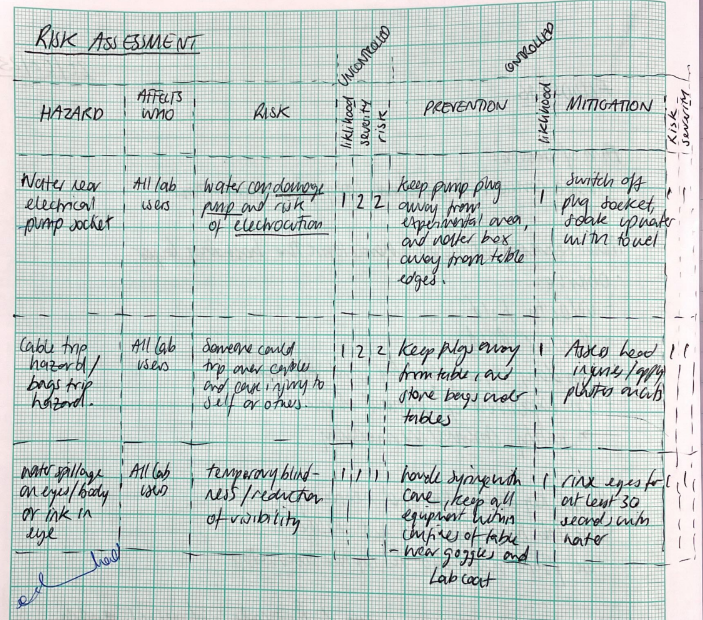 RISK ASSESSMENT
UNCONTROLLED
CONTROLLED
HAZARD
AFFECTS
WHO
RISK
liklihood
severity
risk
PREVENTION
liklihood
MITIGATION
Risk
severity
Water near
electrical
pump socket
All lab
users
water can damage
pump and risk
of electrocution
1
2
2
Keep pump plug
away from
experimental area,
and water box
away from table
edges.
1
Switch off
plug socket,
soak up water
with towel
1
1
Cable trip
hazard/
bags trip
hazard.
All lab
users
Someone could
trip over cables
and cause injury to
self or others.
1
2
2
Keep plugs away
from table, and
store bags under
tables
1
Assess head
injuries/apply
plasters on cuts
1
1
water spillage
on eyes/body
or ink in
eye
All lab
users
temporary blind-
ness/reduction
of visibility
1
1
1
handle syringe with
care, keep all
equipment within
confines of table
- wear goggles and
Lab coat
1
rinse eyes for
at least 30
seconds with
water
1
1